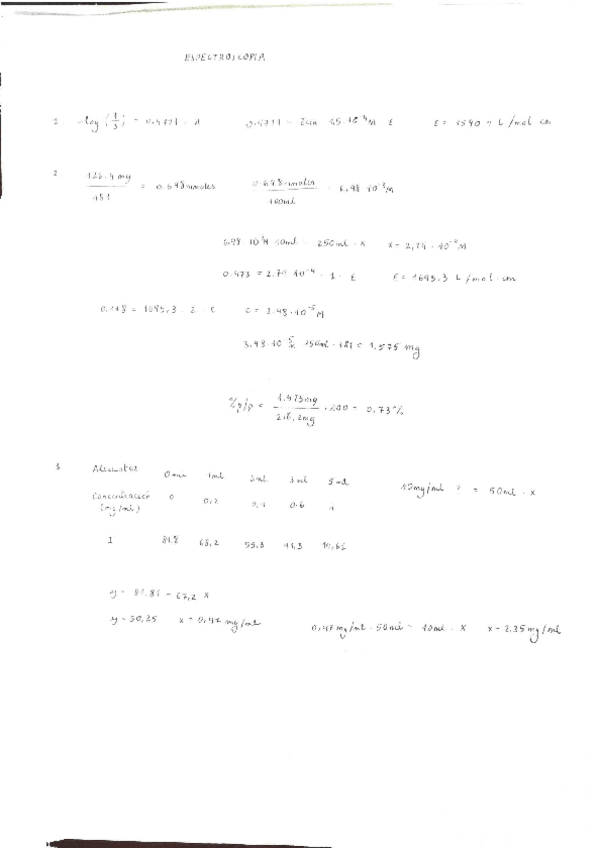 ESPECTROSCOPIA
1 -log (1/3) = 0.4771 = A 0.4771 = 2cm · 1,5·10⁻⁴M · E E = 1590 L/mol·cm
2 126.4 mg / 181 = 0.698 mmoles 0.698 mmoles / 100ml = 6.98·10⁻³M
6.98·10⁻³M · 10ml = 250ml · x x = 2,79·10⁻⁴M
0.473 = 2.79·10⁻⁴ · 1 · E E = 1695.3 L/mol·cm
0.118 = 1695,3 · 2 · C C = 3.48·10⁻⁵M
3.48·10⁻⁵M · 250ml · 181 = 1,575 mg
%p/p = 1.575mg / mg · 100 = 0,73%
3 Alicuotas 0ml 1ml 2ml 3ml 5ml
Concentración (mg/ml) 0 0,2 0,4 0.6 1 10mg/ml · = 50ml · x
81.8 68,2 55.3 41,3
y = 81.81 - 67,2 x
y = 50,25 x = 0,47 mg/ml 0,47 mg/ml · 50ml = 10ml · x x = 2.35 mg/ml